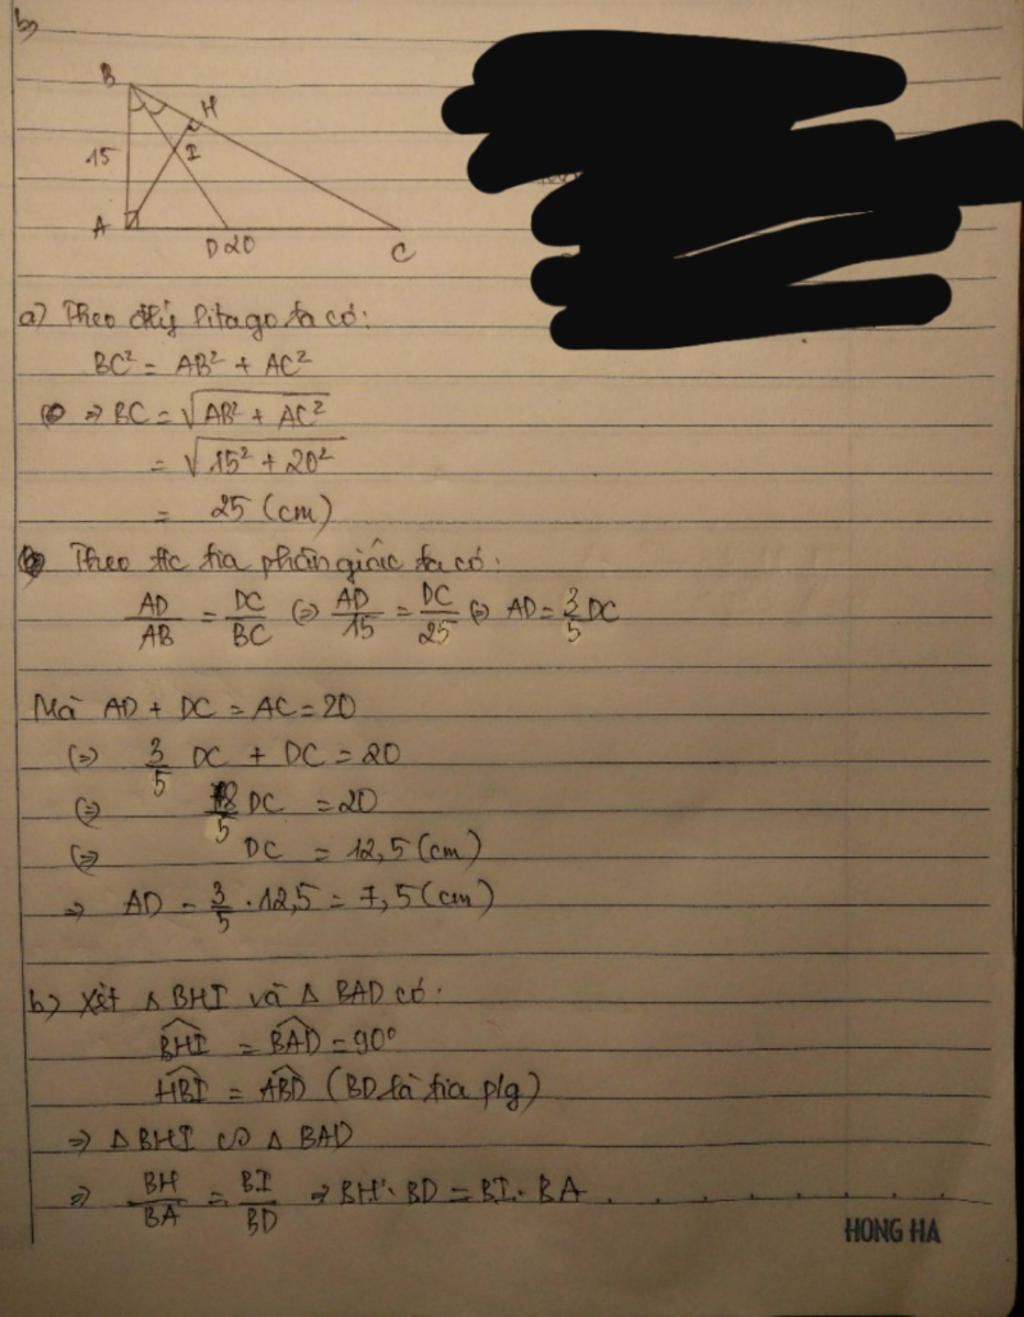 b)
B
H
15
I
A
D 20
C
a) Theo đlý Pitago ta có:
BC² = AB² + AC²
=> BC = √(AB² + AC²)
= √(15² + 20²)
= 25 (cm)
Theo t/c tia phân giác ta có:
AD/AB = DC/BC (=) AD/15 = DC/25 (=) AD = 3/5 DC
Mà AD + DC = AC = 20
(=) 3/5 DC + DC = 20
(=) 8/5 DC = 20
(=) DC = 12,5 (cm)
=> AD = 3/5 . 12,5 = 7,5 (cm)
b) Xét △ BHI và △ BAD có:
BHI = BAD = 90°
HBI = ABD (BD là tia p/g)
=> △ BHI ∽ △ BAD
=> BH/BA = BI/BD => BH . BD = BI . BA
HONG HA